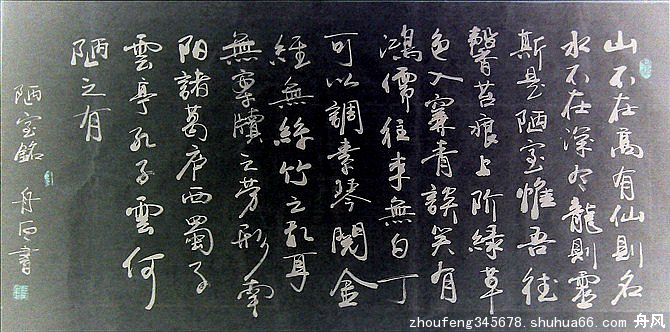 山不在高有仙則名
水不在深有龍則靈
斯是陋室惟吾德
馨苔痕上阶緑草
色入簾青談笑有
鴻儒往来無白丁
可以調素琴閱金
經無絲竹之乱耳
無案牘之劳形南
阳諸葛庐西蜀子
雲亭孔子雲何
陋之有
陋室銘 舟書
zhoufeng345678.shuhua66.com 舟风